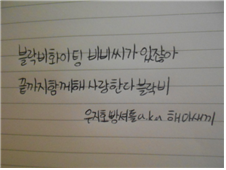 블락비화이팅 비비씨가 있잖아
끝까지함께해 사랑한다 블락비
우지호방셔틀a.k.a 해마새끼